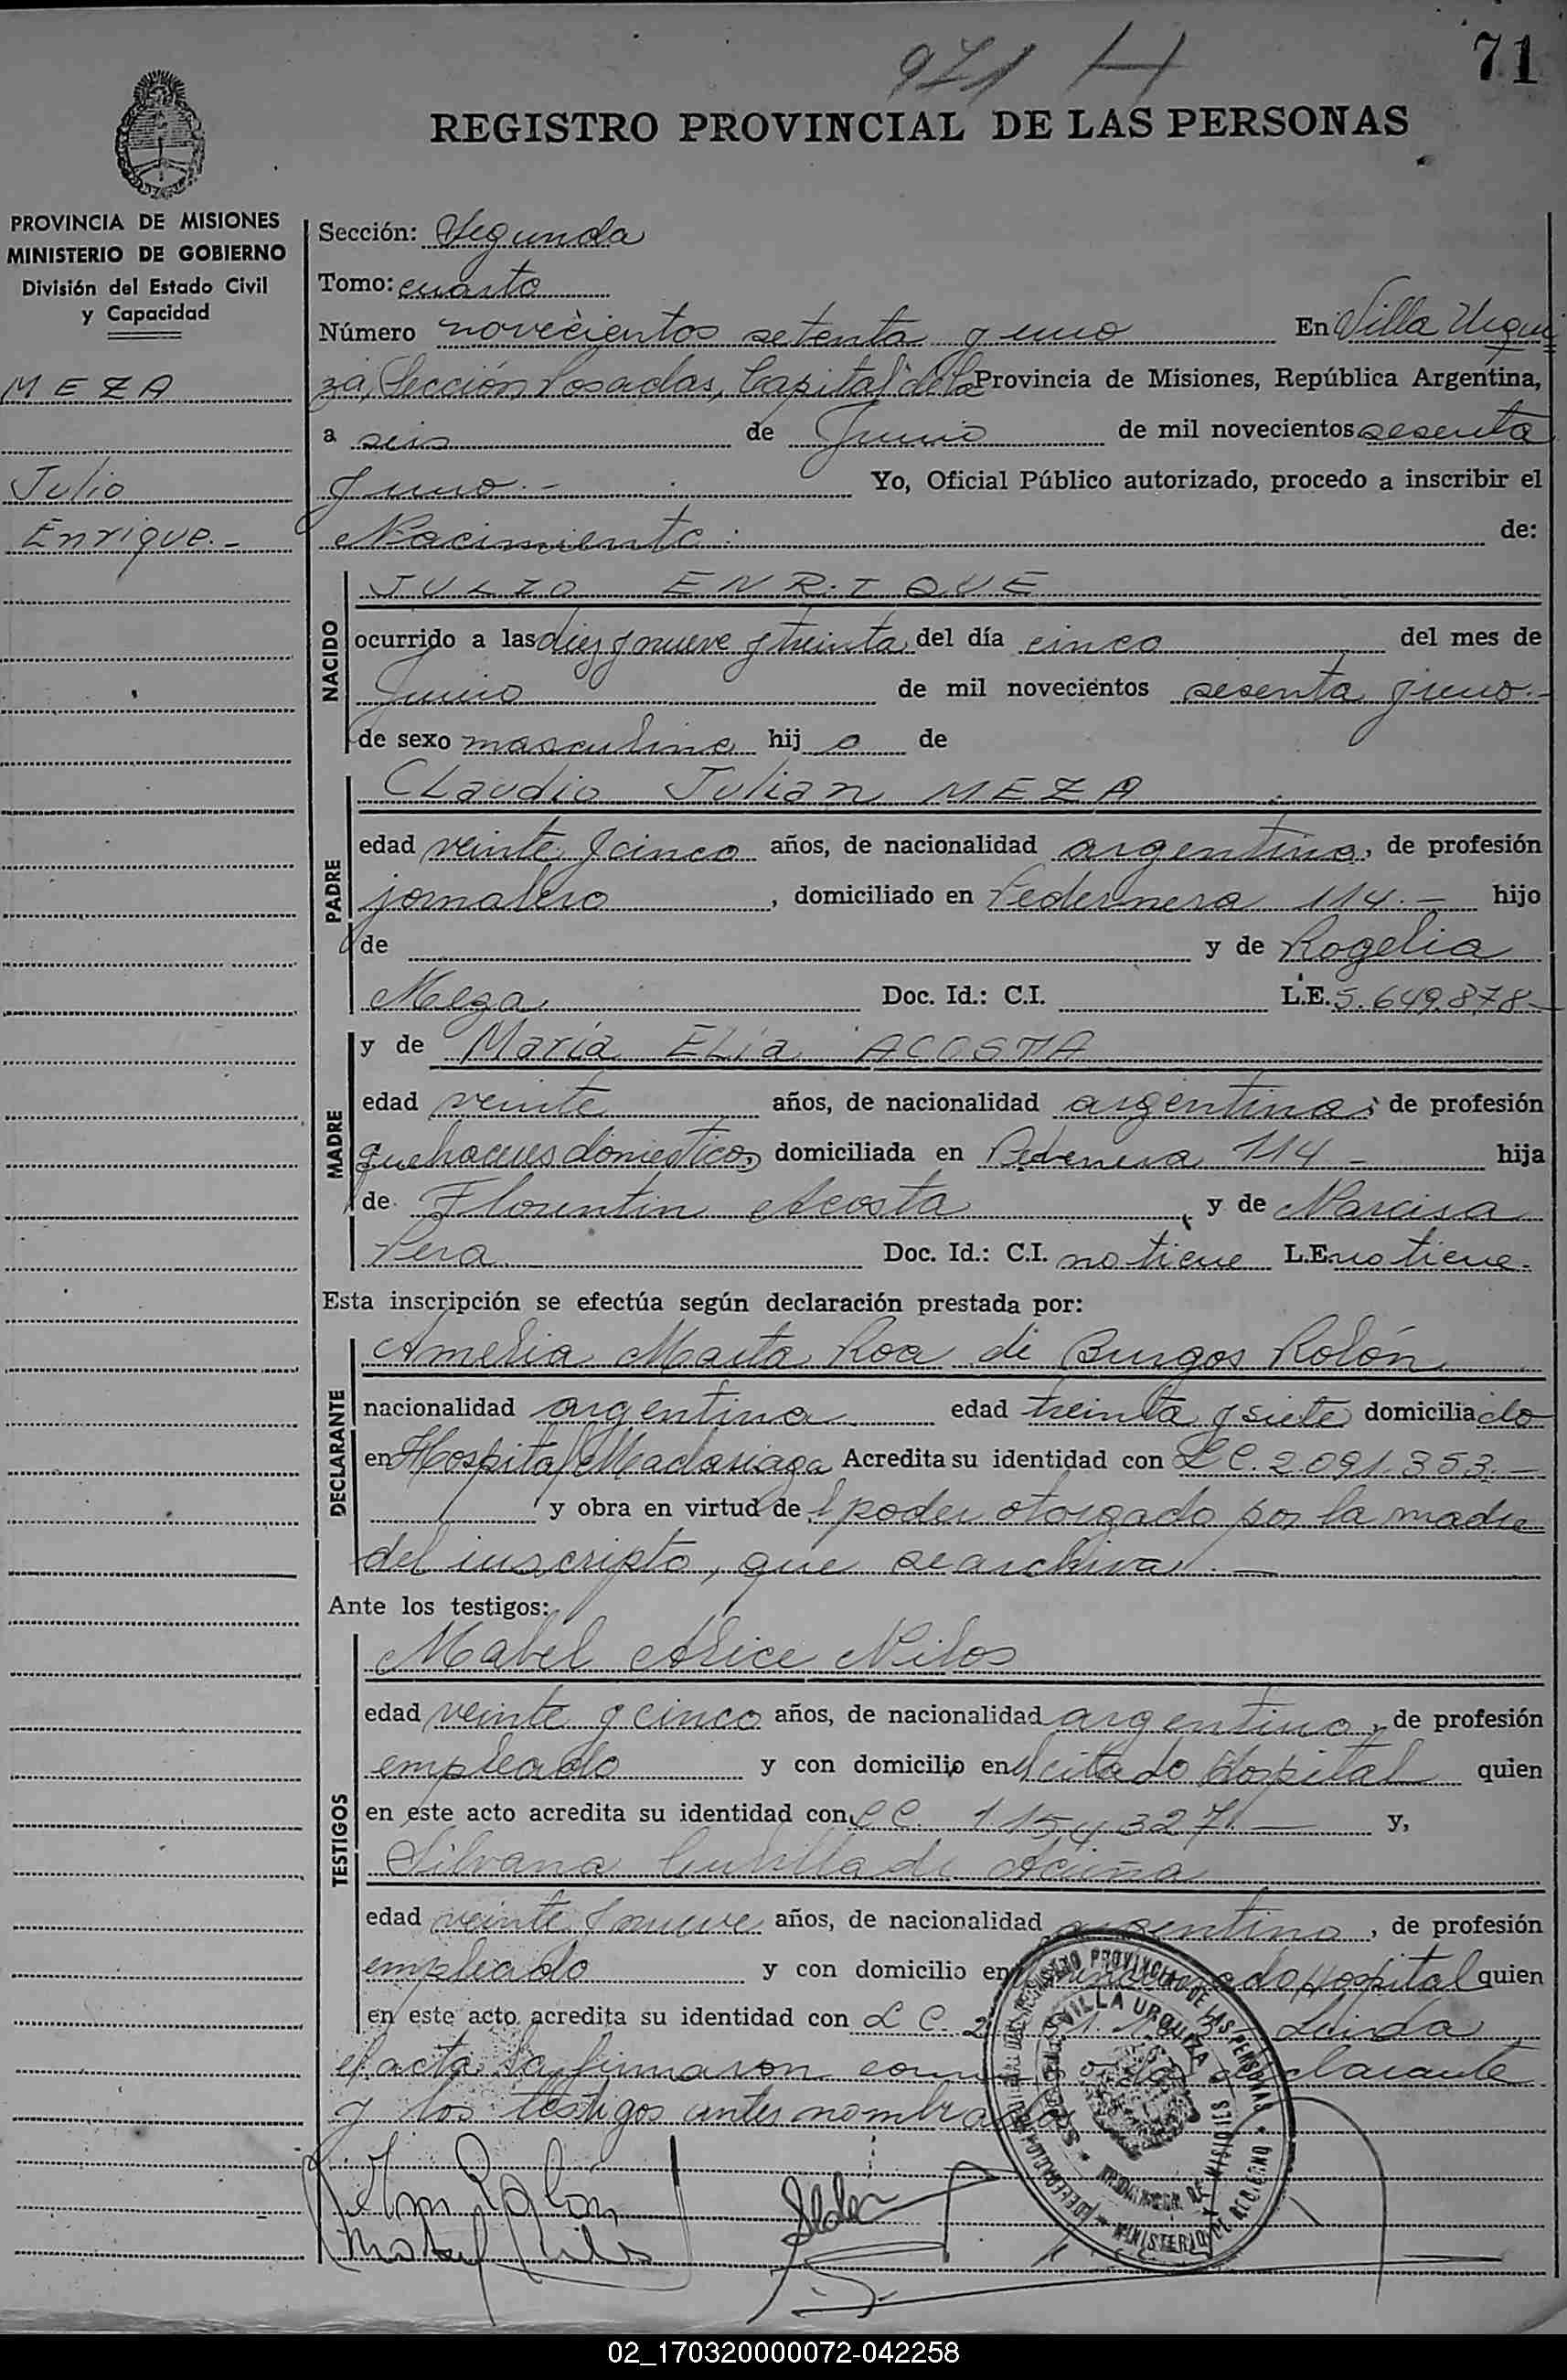 971 H
71
REGISTRO PROVINCIAL DE LAS PERSONAS
PROVINCIA DE MISIONES
MINISTERIO DE GOBIERNO
División del Estado Civil
y Capacidad
MEZA
Julio
Enrique.-
Sección: Segunda
Tomo: cuarto
Número novecientos setenta y uno En Villa Urqui
za, Sección Posadas, Capital de la Provincia de Misiones, República Argentina,
a seis de Junio de mil novecientos sesenta
y uno.- Yo, Oficial Público autorizado, procedo a inscribir el
Nacimiento de:
NACIDO
JULIO ENRIQUE
ocurrido a las diez y nueve y treinta del día cinco del mes de
Junio de mil novecientos sesenta y uno.-
de sexo masculino hijo de
PADRE
Claudio Julian MEZA
edad veinte y cinco años, de nacionalidad argentino, de profesión
jornalero, domiciliado en Pedernera 114.- hijo
de y de Rogelia
Meza Doc. Id.: C.I. L.E. 5.649.878-
MADRE
y de María Elia ACOSTA
edad veinte años, de nacionalidad argentina, de profesión
quehaceres domesticos, domiciliada en Pedernera 114 - hija
de Florentin Acosta, y de Narcisa
Vera Doc. Id.: C.I. no tiene L.E. no tiene.
Esta inscripción se efectúa según declaración prestada por:
DECLARANTE
Amelia Marta Roa de Burgos Rolón
nacionalidad argentina edad treinta y siete domiciliado
en Hospital Madariaga Acredita su identidad con L C. 2.091.353.-
y obra en virtud de l poder otorgado por la madre
del inscripto, que se archiva.-
Ante los testigos:
TESTIGOS
Mabel Alice Nilos
edad veinte y cinco años, de nacionalidad argentino, de profesión
empleado y con domicilio en el citado Hospital quien
en este acto acredita su identidad con L C. 1.154.327.- y,
Silvana de Acuña
edad veinte y nueve años, de nacionalidad argentino, de profesión
empleado y con domicilio en mencionado Hospital quien
en este acto acredita su identidad con L C. 2 Leida
el acta la firmaron conmigo la declarante
y los testigos antes nombrados
REGISTRO PROVINCIAL DE LAS PERSONAS
VILLA URQUIZA
PROVINCIA DE MISIONES
MINISTERIO DE GOBIERNO
02_170320000072-042258